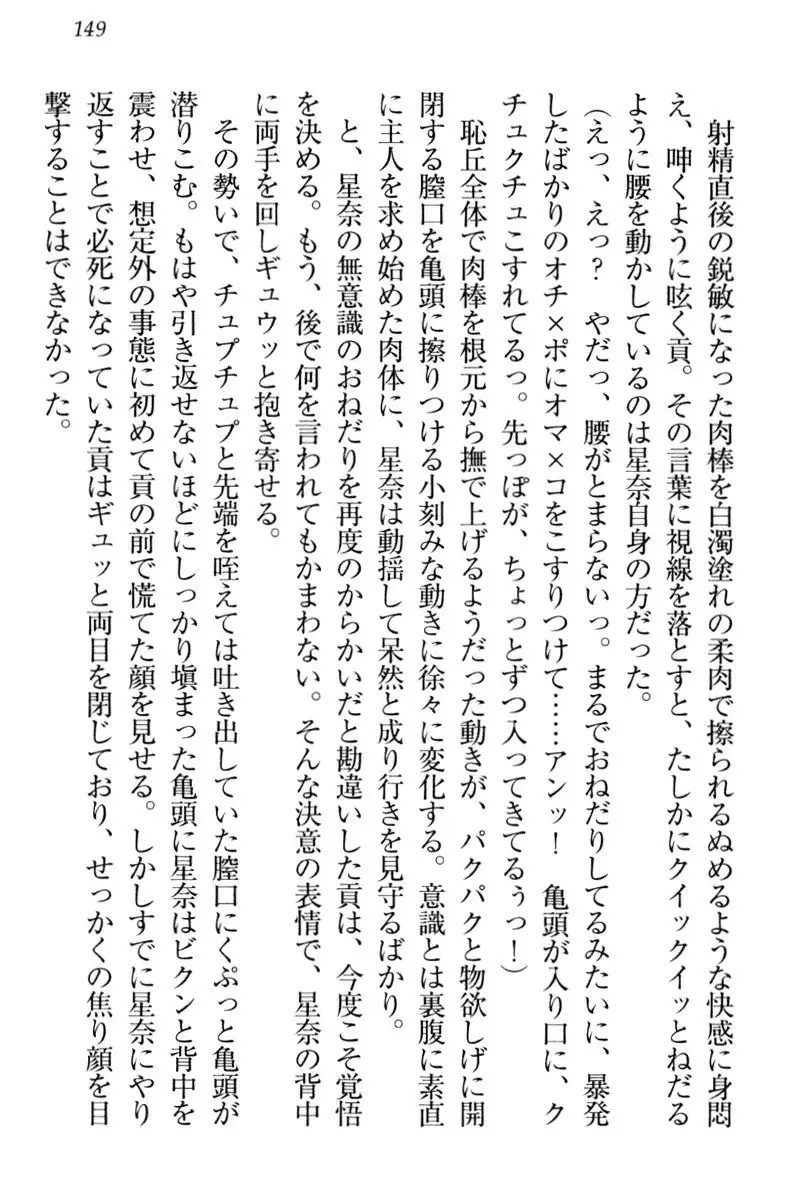 149
射精直後の鋭敏になった肉棒を白濁塗れの柔肉で擦られるぬめるような快感に身悶
え、呻くように呟く貢。その言葉に視線を落とすと、たしかにクイックイッとねだる
ように腰を動かしているのは星奈自身の方だった。
(えっ、えっ？　やだっ、腰がとまらないっ。まるでおねだりしてるみたいに、暴発
したばかりのオチ×ポにオマ×コをこすりつけて……アンッ！　亀頭が入り口に、ク
チュクチュこすれてるっ。先っぽが、ちょっとずつ入ってきてるぅっ！)
恥丘全体で肉棒を根元から撫で上げるようだった動きが、パクパクと物欲しげに開
閉する膣口を亀頭に擦りつける小刻みな動きに徐々に変化する。意識とは裏腹に素直
に主人を求め始めた肉体に、星奈は動揺して呆然と成り行きを見守るばかり。
と、星奈の無意識のおねだりを再度のからかいだと勘違いした貢は、今度こそ覚悟
を決める。もう、後で何を言われてもかまわない。そんな決意の表情で、星奈の背中
に両手を回しギュウッと抱き寄せる。
その勢いで、チュプチュプと先端を咥えては吐き出していた膣口にくぷっと亀頭が
潜りこむ。もはや引き返せないほどにしっかり塡まった亀頭に星奈はビクンと背中を
震わせ、想定外の事態に初めて貢の前で慌てた顔を見せる。しかしすでに星奈にやり
返すことで必死になっていた貢はギュッと両目を閉じており、せっかくの焦り顔を目
撃することはできなかった。